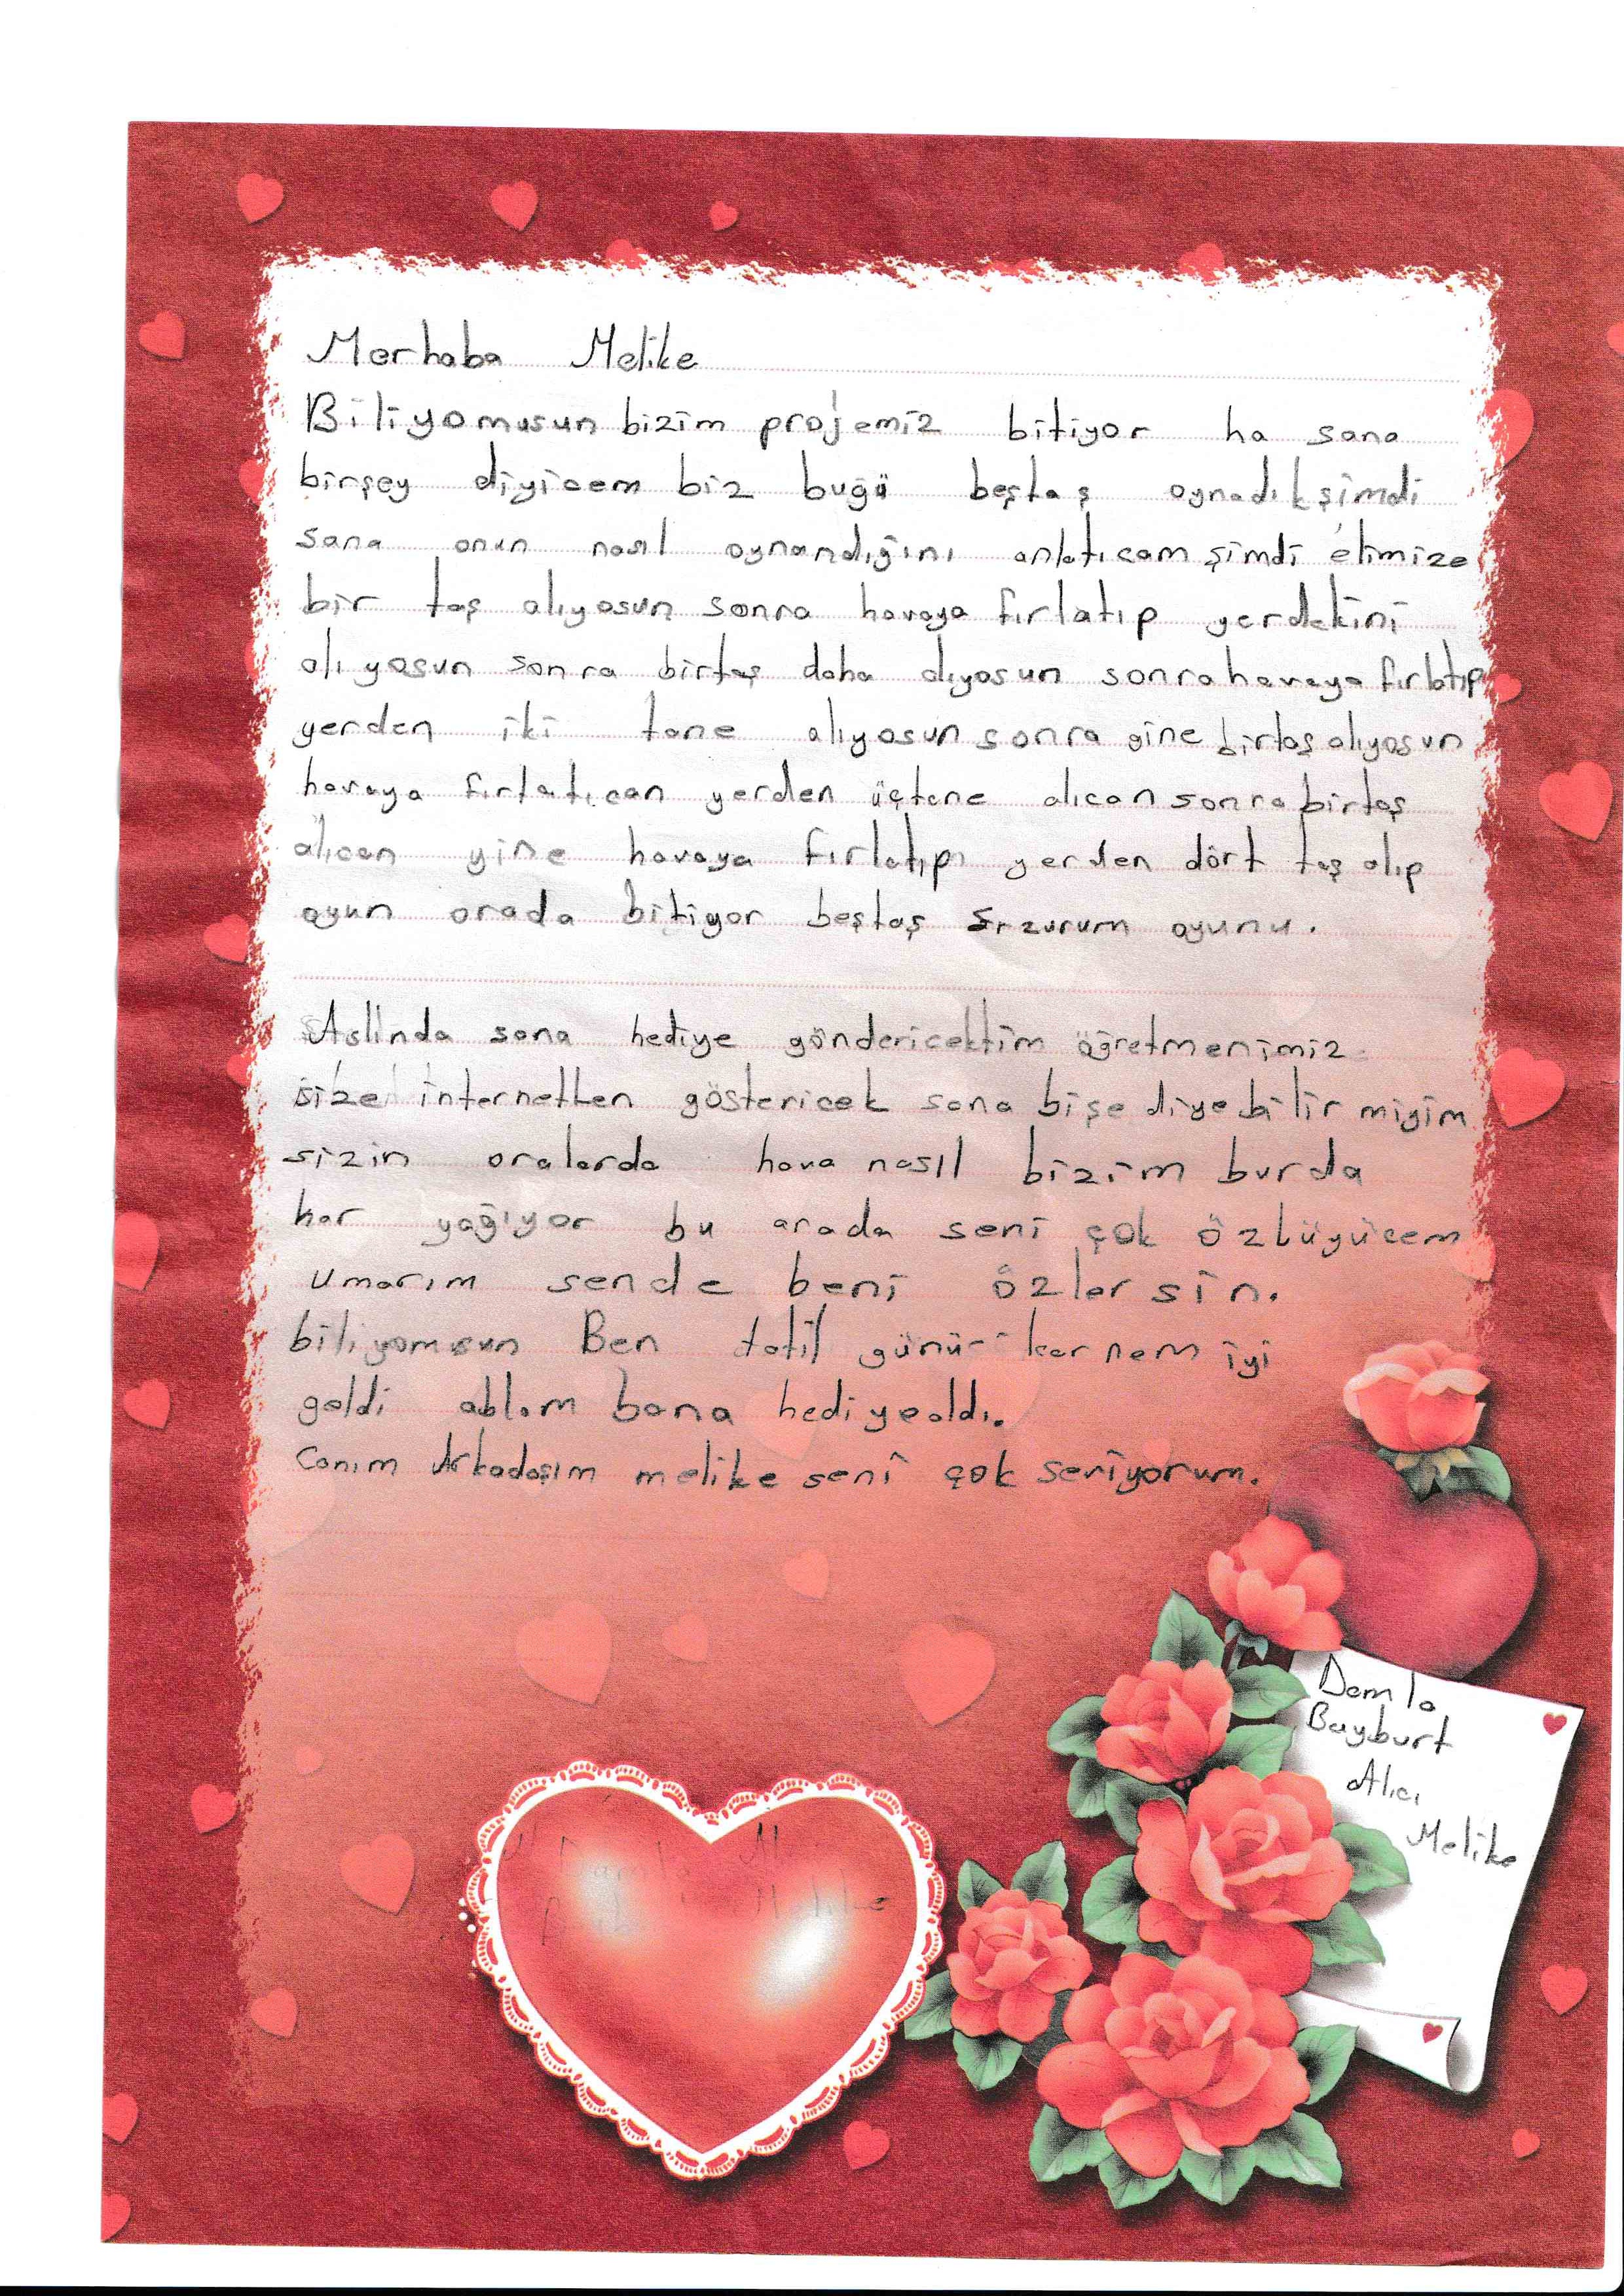 Merhaba Melike
Biliyomusun bizim projemiz bitiyor ha sana
birşey diyicem biz buğü beştaş oynadık şimdi
sana onun nasıl oynandığını anlatıcam şimdi elimize
bir taş alıyosun sonra havaya fırlatıp yerdekini
alıyosun sonra birtaş daha alıyosun sonra havaya fırlatıp
yerden iki tane alıyosun sonra gine birtaş alıyosun
havaya fırlatıcan yerden üçtane alıcan sonra birtaş
alıcan yine havaya fırlatıp yerden dört taş alıp
oyun orada bitiyor beştaş Erzurum oyunu.
Aslinda sana hediye göndericektim öğretmenimiz
size internetten göstericek sana bişe diyebilir miyim
sizin oralarda hava nasıl bizim burda
kar yağıyor bu arada seni çok özlüyücem
umarım sende beni özlersin.
biliyomusun Ben tatil günü karnem iyi
geldi ablam bana hediyealdı.
Canım Arkadaşım melike seni çok seviyorum.
Damla
Bayburt
Alıcı
Melike